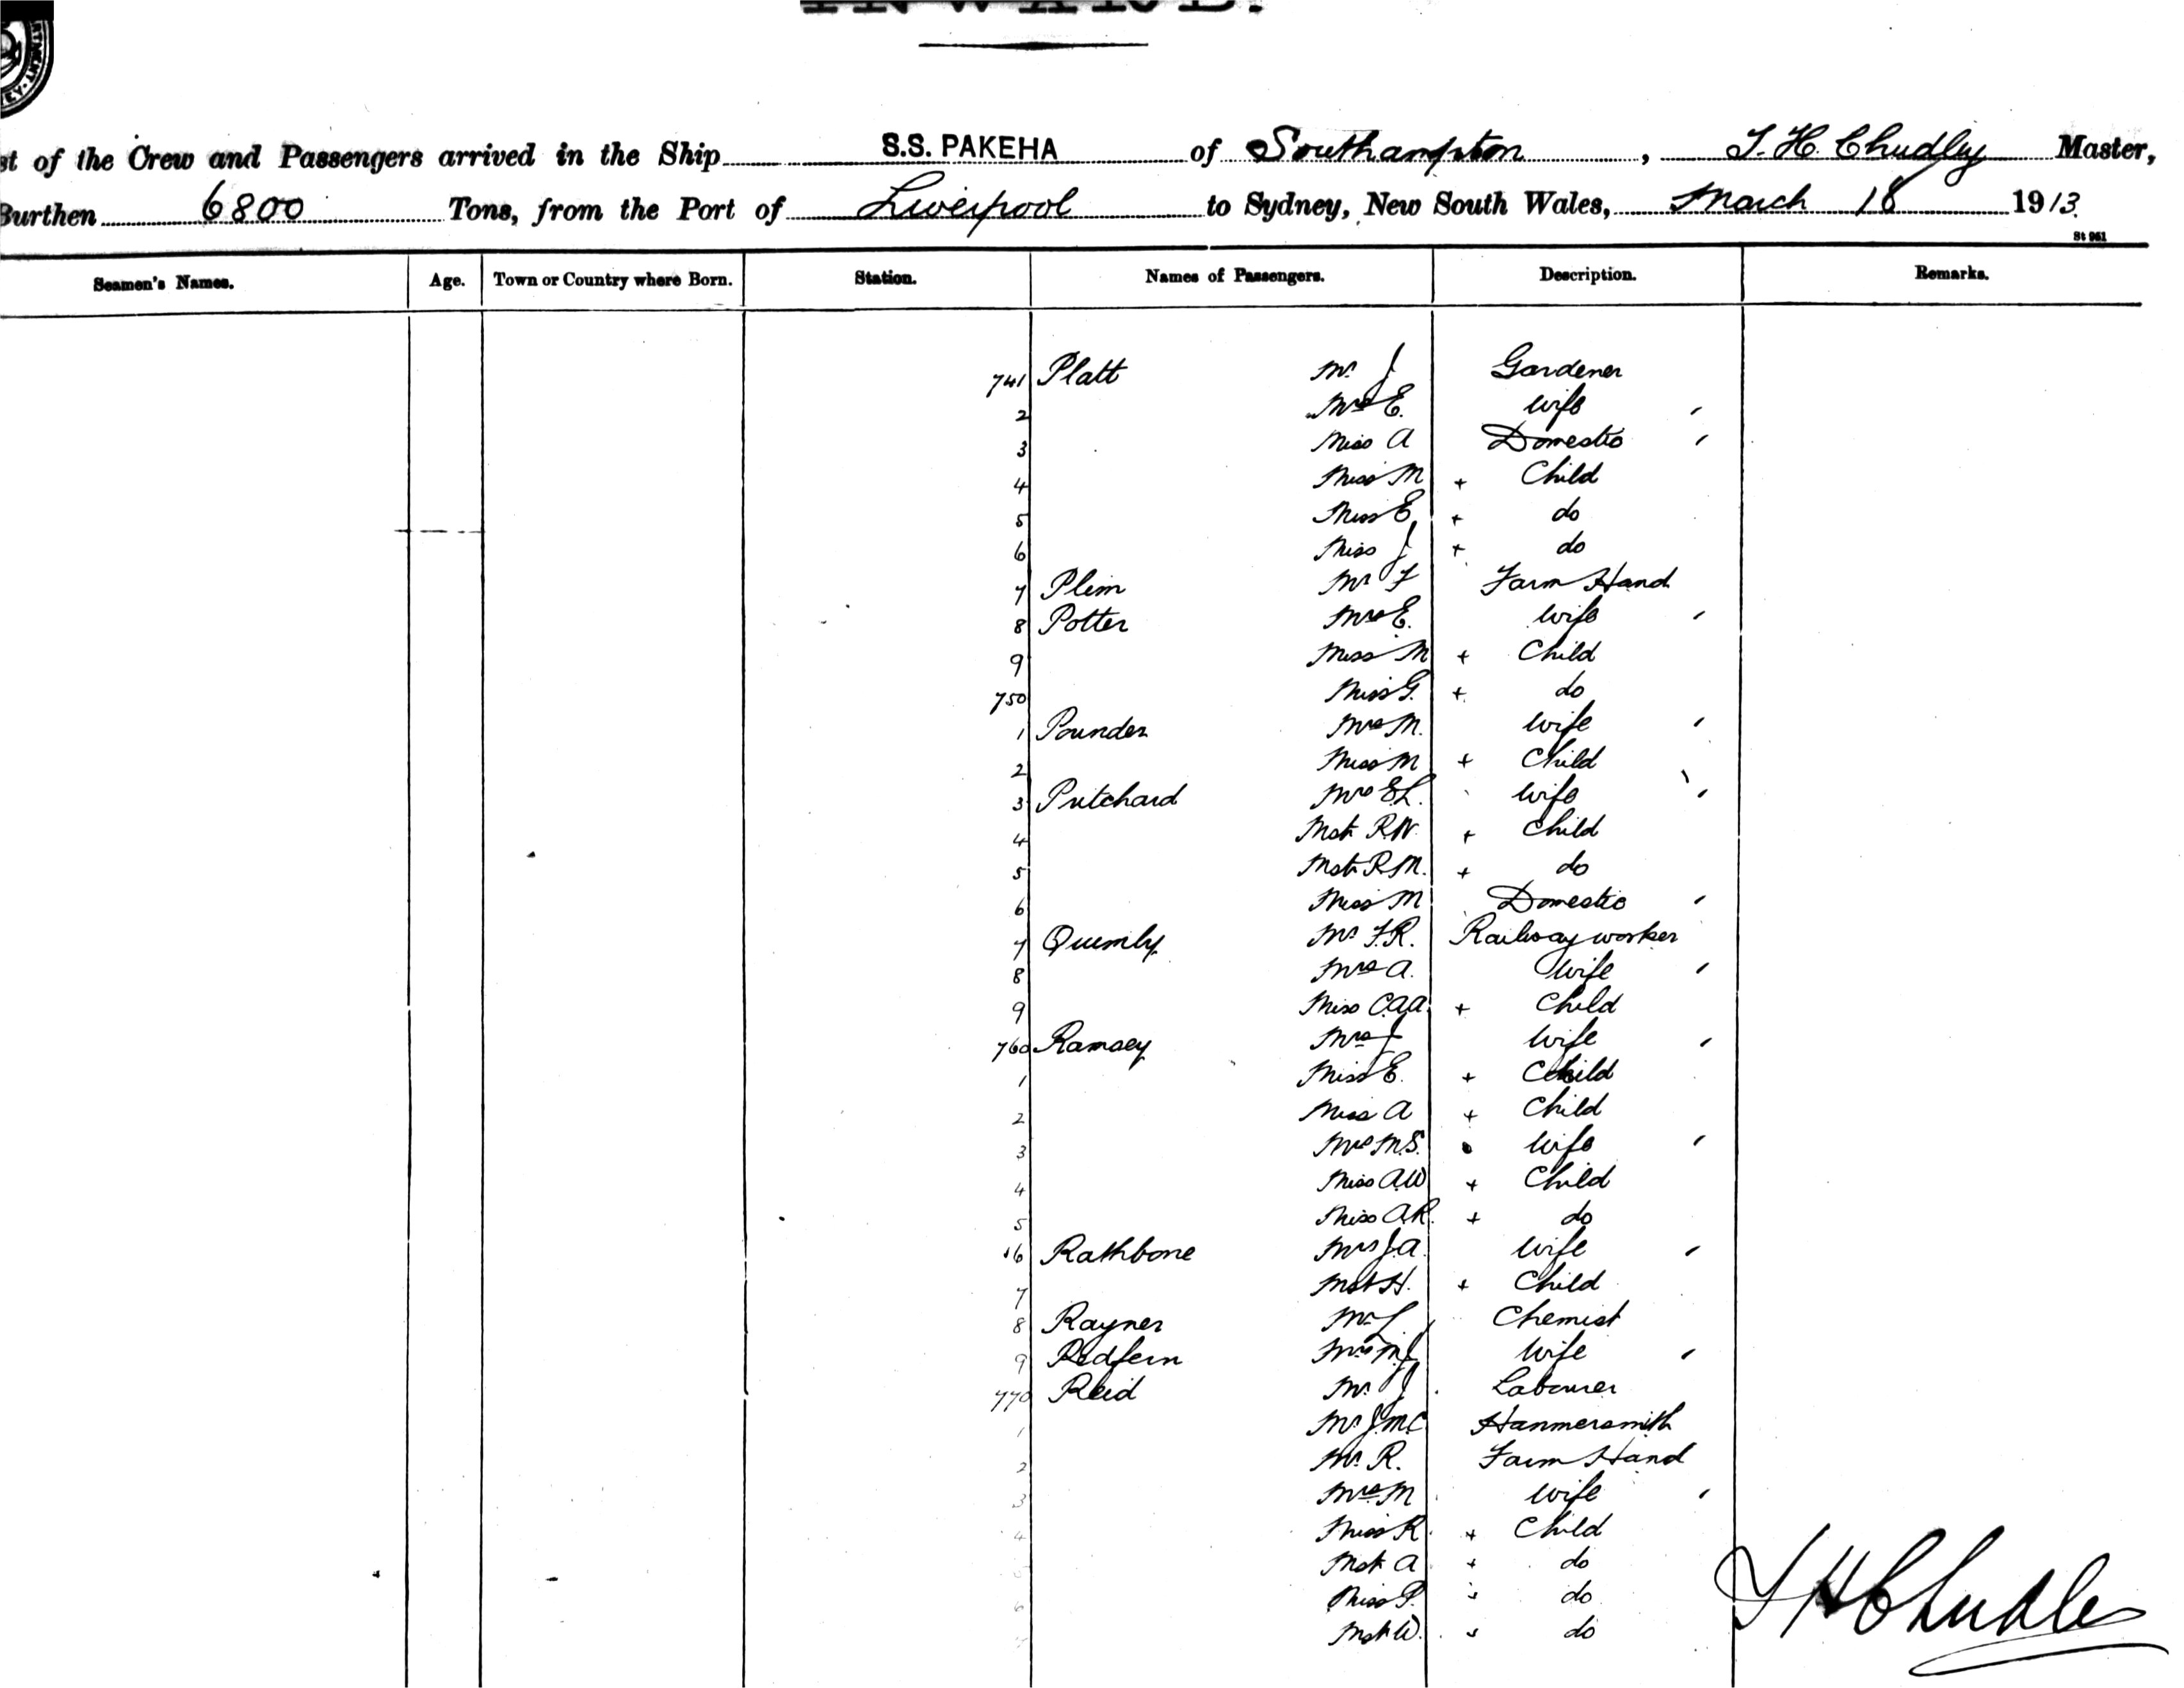 INWARD.
st of the Crew and Passengers arrived in the Ship S.S. PAKEHA of Southampton, T. H. Chudley Master,
Burthen 6800 Tons, from the Port of Liverpool to Sydney, New South Wales, March 18 1913.
St 961
Seamen's Names. Age. Town or Country where Born. Station. Names of Passengers. Description. Remarks.
741 Platt Mr J Gardener
2 Mrs E. Wife
3 Miss A Domestic
4 Miss M + Child
5 Miss E + do
6 Miss J + do
7 Plim Mr F Farm Hand
8 Potter Mrs E. Wife
9 Miss M + Child
750 Miss G. + do
1 Pounder Mrs M. Wife
2 Miss M + Child
3 Pritchard Mrs E.L. Wife
4 Mstr R.W. + Child
5 Mstr R.M. + do
6 Miss M Domestic
7 Quimly Mr F.R. Railway worker
8 Mrs A. Wife
9 Miss C.A.A. + Child
760 Ramsey Mrs J Wife
1 Miss E. + Child
2 Miss A + Child
3 Mrs M.S. Wife
4 Miss A.W + Child
5 Miss A.R. + do
6 Rathbone Mrs J.A. Wife
7 Mstr H. + Child
8 Rayner Mr L Chemist
9 Redfern Mrs M.J. Wife
770 Reid Mr J Labourer
1 Mr J.McC Hammersmith
2 Mr R. Farm Hand
3 Mrs M Wife
4 Miss R. + Child
Mstr A + do
6 Miss P. do
Mstr W. do
T H Chudley